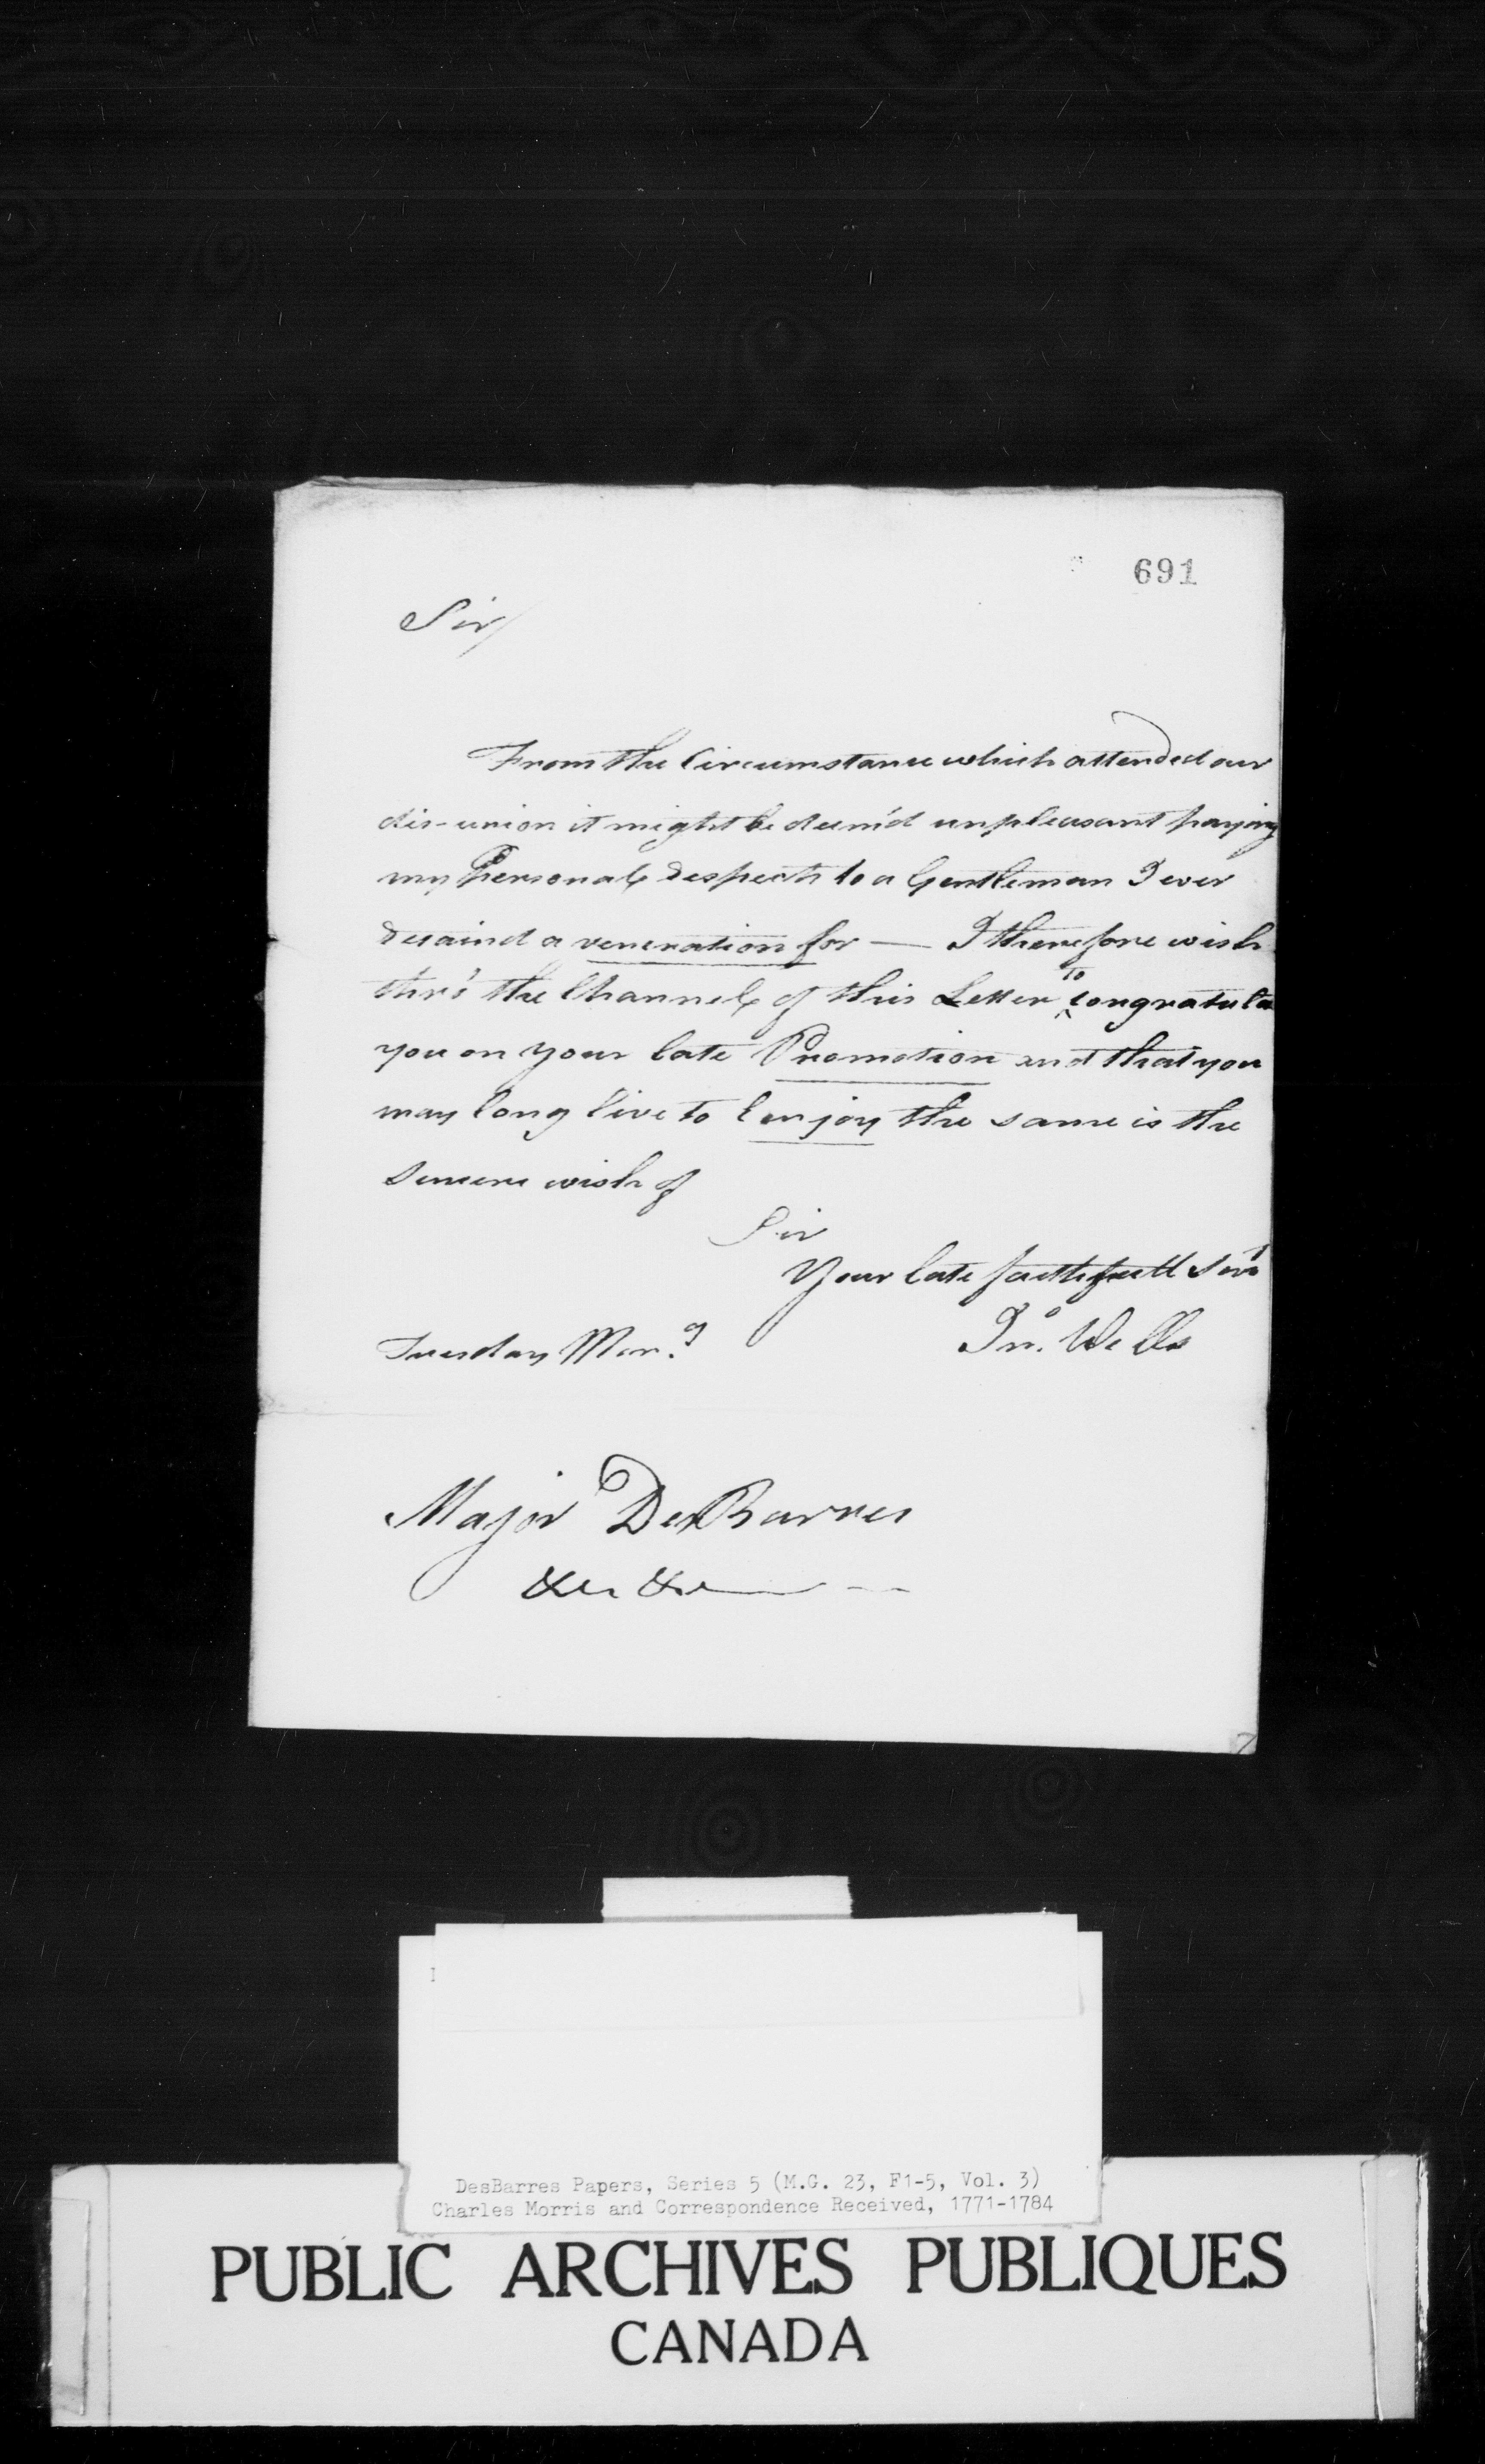 691
Sir/
From the Circumstance which attended our
dis-union it might be deem'd unpleasant paying
my Personal Respects to a Gentleman I ever
Retaind a veneration for — I therefore wish
thro' the Channel of this Letter to congratula
you on your late Promotion and that you
may long live to Enjoy the same is the
Sincere wish of
Sir
Your late faithfull Servt
Tuesday Morg. Jno. Wells
Major DesBarres
&c &c
DesBarres Papers, Series 5 (M.G. 23, F1-5, Vol. 3)
Charles Morris and Correspondence Received, 1771-1784
PUBLIC ARCHIVES PUBLIQUES
CANADA